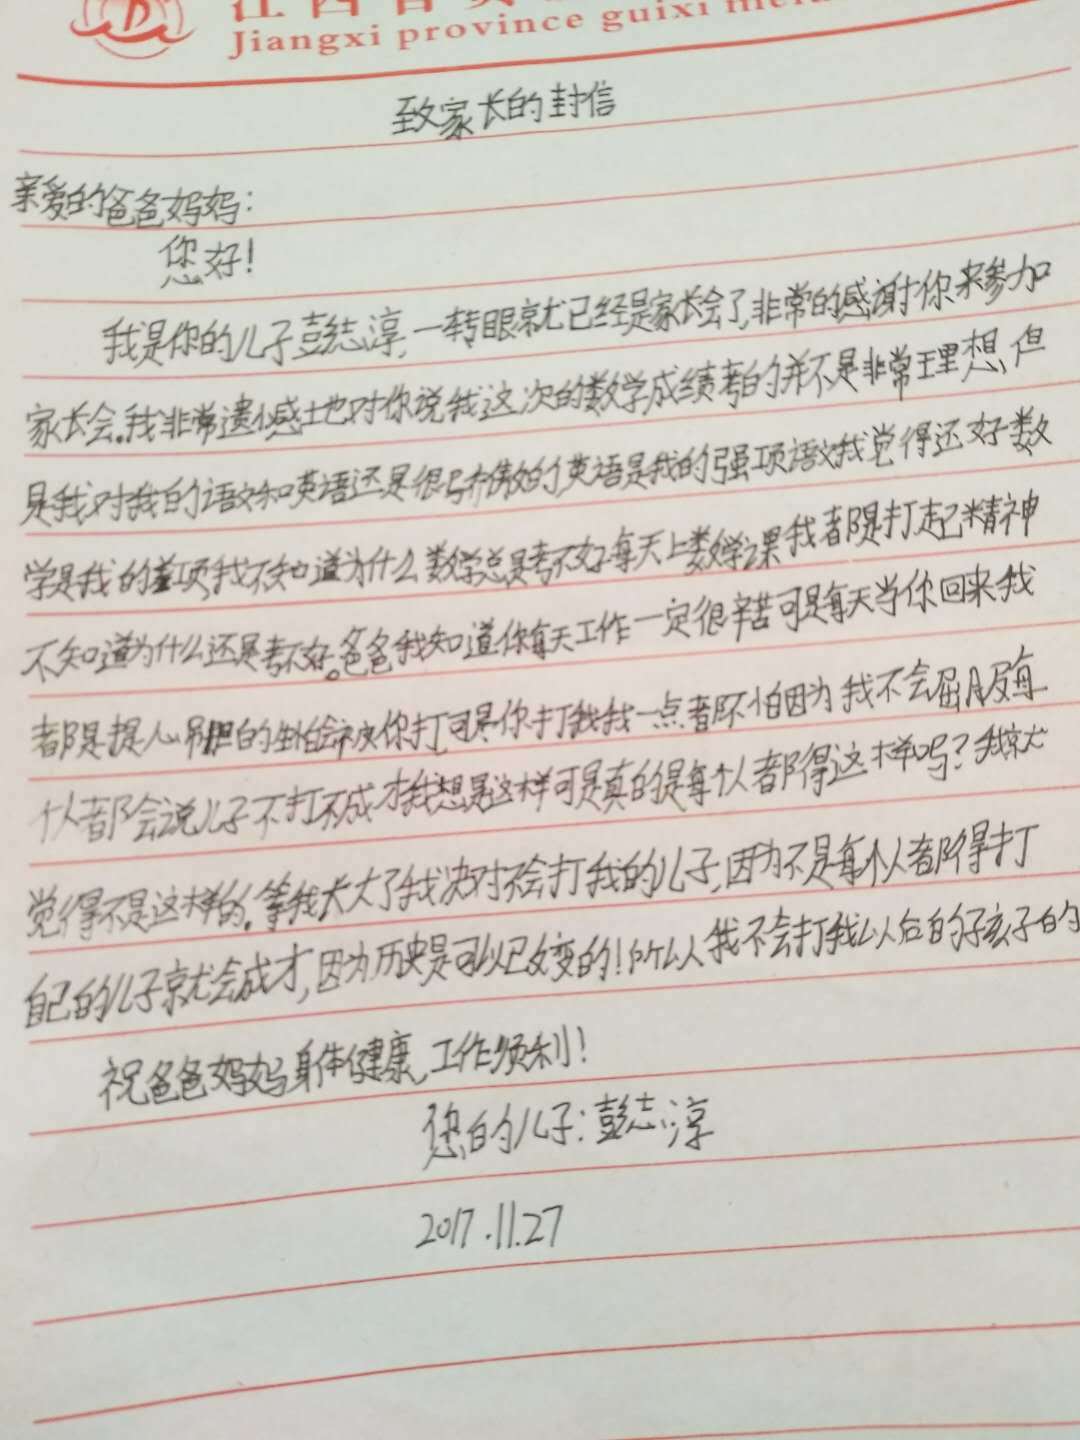 Jiangxi province guixi
致家长的封信
亲爱的爸爸妈妈:
您好!
我是你的儿子彭志淳,一转眼就已经是家长会了,非常的感谢你来参加
家长会。我非常遗憾地对你说我这次的数学成绩考的并不是非常理想,但
是我对我的语文和英语还是很骄傲的英语是我的强项语文我觉得还好数
学是我的项我不知道为什么数学总是考不好每天上数学课我都是打起精神
不知道为什么还是考不好。爸爸我知道你每天工作一定很辛苦可是每天当你回来我
都是提心吊胆的生怕会被你打,可是你打我我一点都不怕因为我不会屈服每
个人都会说儿子不打不成才我想是这样可是真的是每个人都得这样吗?我就
觉得不是这样的。等我长大了我决对不会打我的儿子,因为不是每个人都得打
自己的儿子就会成才,因为历史是可以改变的!所以我不会打我以后的孩子的
祝爸爸妈妈身体健康,工作顺利!
您的儿子:彭志淳
2017.11.27